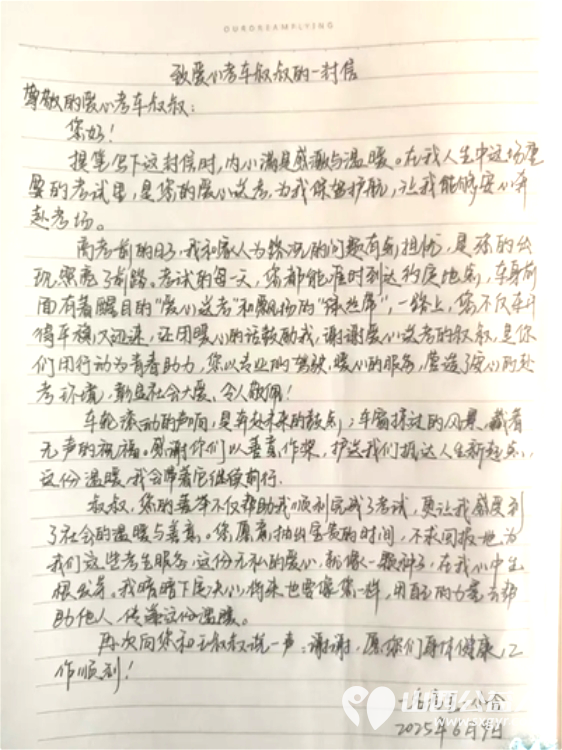 OURDREAMFLYING
致爱心考车叔叔的一封信
尊敬的爱心考车叔叔：
您好！
提笔写下这封信时，内心满是感激与温暖。在我人生中这场重
要的考试里，是您的爱心送考，为我保驾护航，让我能够安心奔
赴考场。
高考前的日子，我和家人为路况的问题有点担忧，是您的出
现照亮了前路。考试的每一天，您都能准时到达约定地点，车身前
面有着醒目的“爱心送考”和飘扬的“绿丝带”，一路上，您不仅车开
得平稳又迅速，还用暖心的话鼓励我，谢谢爱心送考的叔叔，是你
们用行动为青春助力，您以专业的驾驶，暖心的服务，营造了安心的赴
考环境，彰显社会大爱、令人敬佩！
车轮滚动的声响，是奔赴未来的鼓点；车窗掠过的风景，藏着
无声的祝福。感谢你们以善意作桨，护送我们抵达人生新起点，
这份温暖，我会带着它继续前行.
叔叔，您的善举不仅帮助我顺利完成了考试，更让我感受到
了社会的温暖与善意。您愿意抽出宝贵的时间，不求回报地为
我们这些考生服务，这份无私的爱心，就像一颗种子，在我心中生
根发芽。我暗暗下定决心，将来也要像您一样，用自己的力量去帮
助他人，传递这份温暖。
再次向您和王叔叔说一声：谢谢，愿你们身体健康，工
作顺利！
2025年6月9日
山西公益
www.sxgy